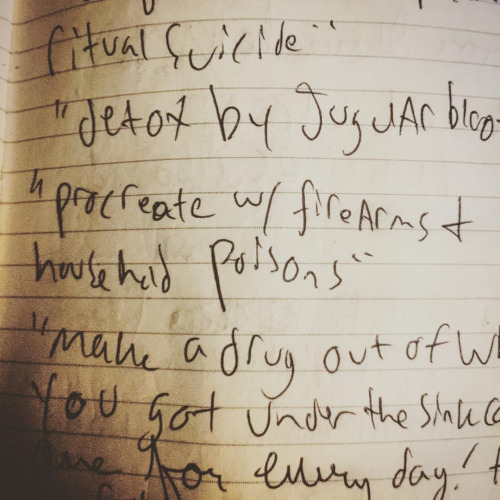 ritual suicide"
"detox by Jugular bloo
"procreate w/ firearms &
household poisons"
"make a drug out of w
you got under the sink
for every day!